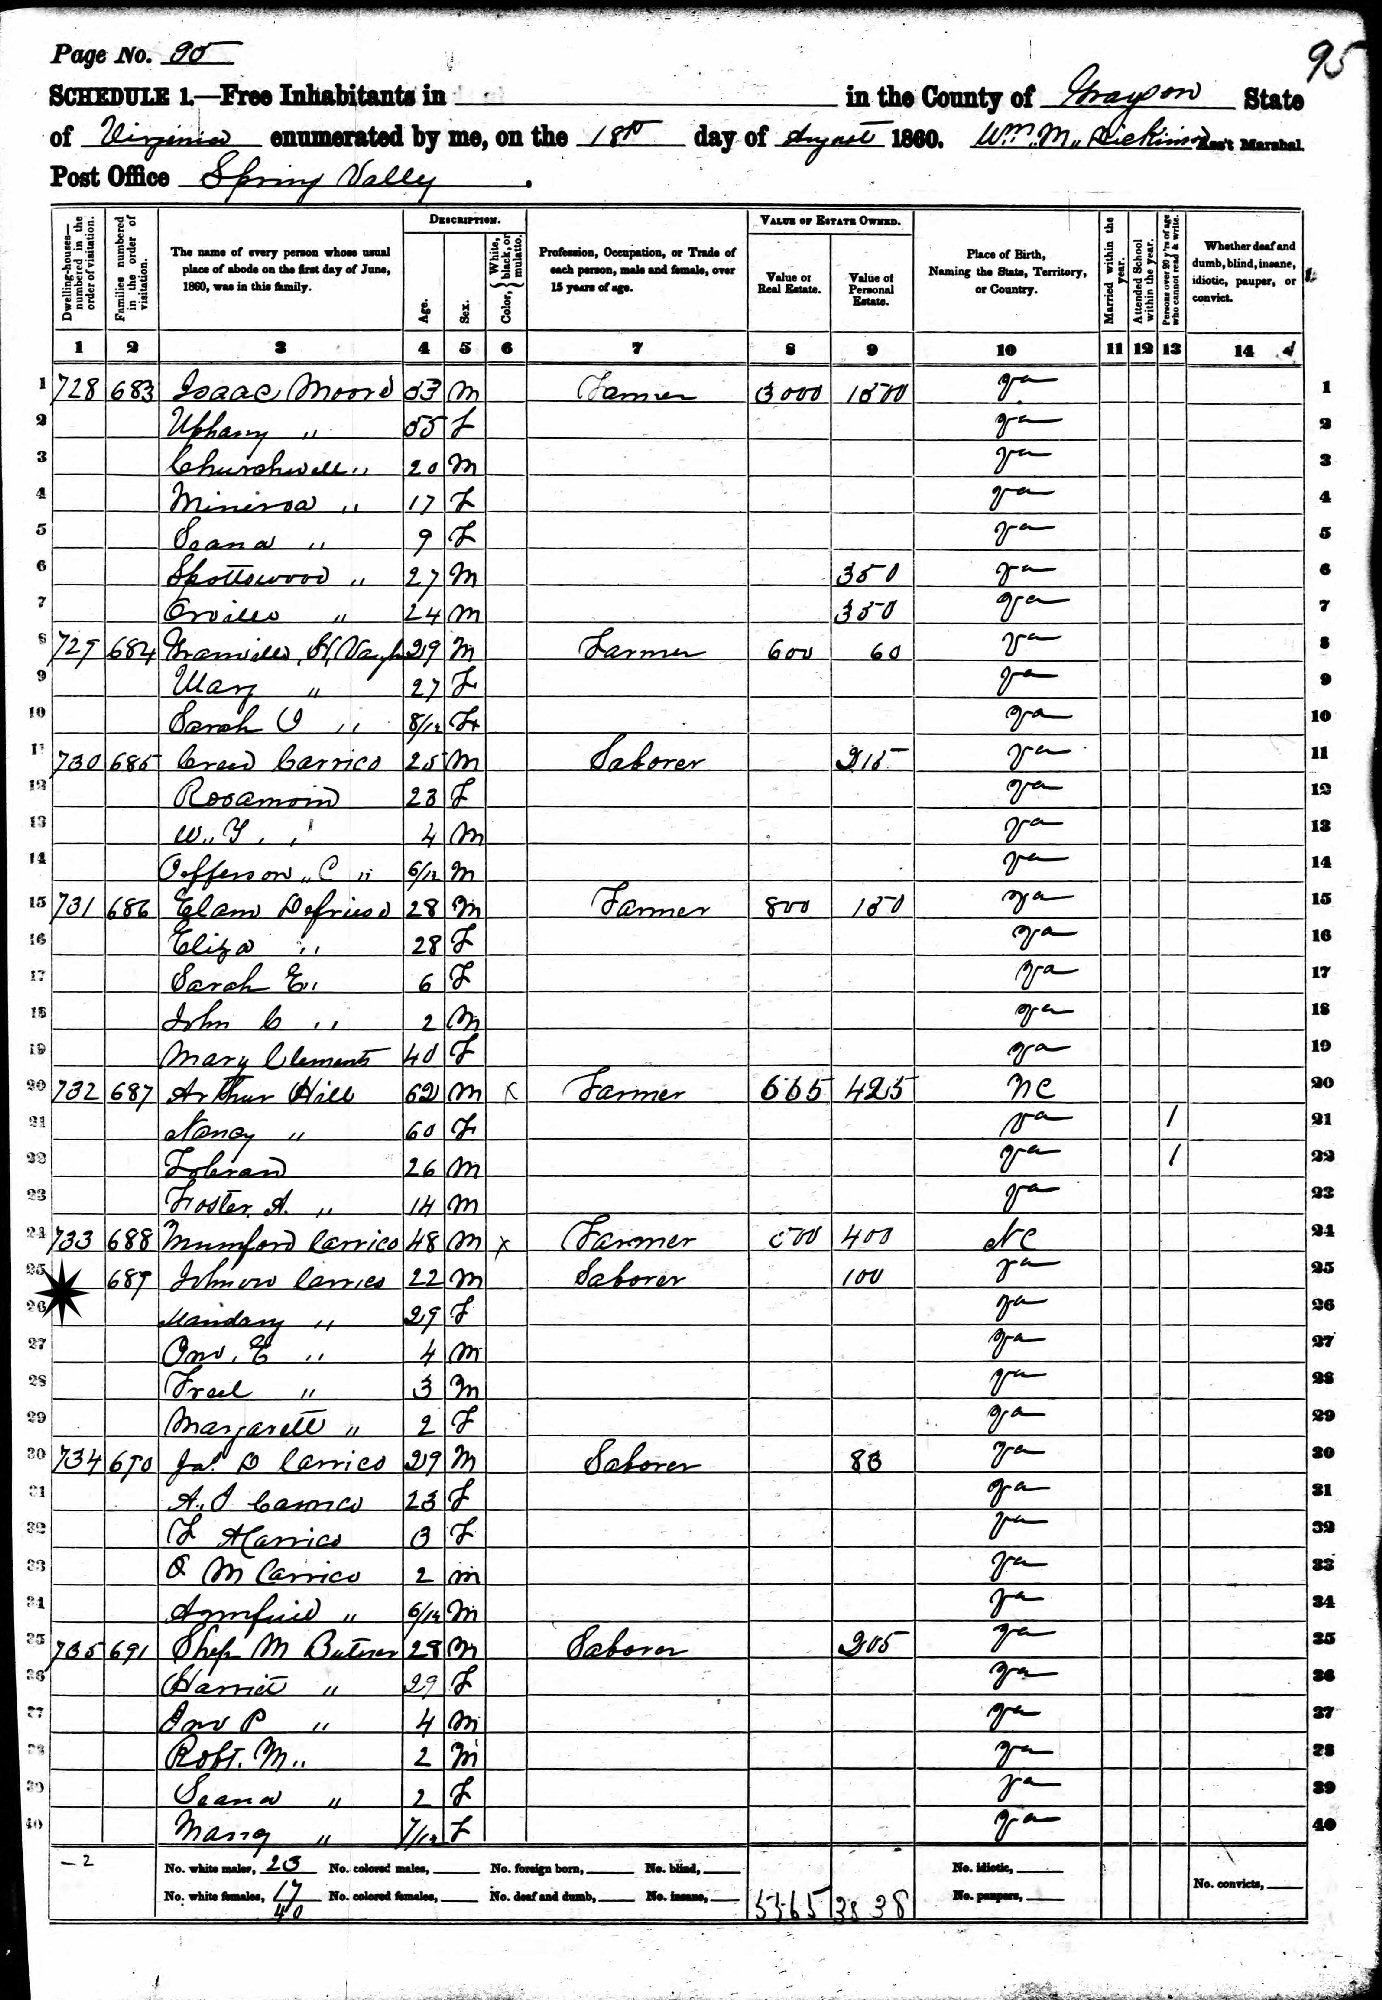 Page No. 95
95
SCHEDULE 1.—Free Inhabitants in in the County of Grayson State
of Virginia enumerated by me, on the 18th day of August 1860. Wm. M. Dickinson Ass't Marshal.
Post Office Spring Vally .
Dwelling-houses—numbered in the order of visitation.
Families numbered in the order of visitation.
The name of every person whose usual place of abode on the first day of June, 1860, was in this family.
DESCRIPTION.
Age.
Sex.
Color, { White, black, or mulatto.
Profession, Occupation, or Trade of each person, male and female, over 15 years of age.
VALUE OF ESTATE OWNED.
Value of Real Estate.
Value of Personal Estate.
Place of Birth, Naming the State, Territory, or Country.
Married within the year.
Attended School within the year.
Persons over 20 y'rs of age who cannot read & write.
Whether deaf and dumb, blind, insane, idiotic, pauper, or convict.
1 2 3 4 5 6 7 8 9 10 11 12 13 14
1 728 683 Isaac Moore 53 M Farmer 3000 1500 Va 1
2 " 55 F Va 2
3 Churchwell " 20 M Va 3
4 Minerva " 17 F Va 4
5 " 9 F Va 5
6 Spottswood " 27 M 350 Va 6
7 Orville " 24 M 350 Va 7
8 729 684 Granville H. 29 M Farmer 600 60 Va 8
9 Mary " 27 F Va 9
10 Sarah J " 8/12 F Va 10
11 730 685 Creed Carrico 25 M Laborer 215 Va 11
12 Rosamon 23 F Va 12
13 W. " 4 M Va 13
14 Jefferson C " 6/12 M Va 14
15 731 686 Elam 28 M Farmer 800 150 Va 15
16 Eliza " 28 F Va 16
17 Sarah E " 6 F Va 17
18 John C " 2 M Va 18
19 Mary Clements 40 F Va 19
20 732 687 Arthur Hill 62 M x Farmer 665 425 NC 20
21 Nancy " 60 F Va 1 21
22 26 M Va 1 22
23 Foster A. " 14 M Va 23
24 733 688 Mumford Carrico 48 M x Farmer 400 NC 24
25 689 Johnson Carrico 22 M Laborer 100 Va 25
26 " 29 F Va 26
27 Jno. E " 4 M Va 27
28 Freel " 3 M Va 28
29 Margarett " 2 F Va 29
30 734 690 Jas. B Carrico 29 M Laborer 83 Va 30
31 A. J Carrico 23 F Va 31
32 F A Carrico 3 F Va 32
33 M Carrico 2 M Va 33
34 " 6/12 M Va 34
35 735 691 Shep M 28 M Laborer 205 Va 35
36 Harriet " 29 F Va 36
37 Jno P " 4 M Va 37
38 Robt. M " 2 M Va 38
39 " 2 F Va 39
40 " 7/12 F Va 40
– 2
No. white males, 23 No. colored males, No. foreign born, No. blind, No. idiotic,
No. white females, 17 No. colored females, No. deaf and dumb, No. insane, 5565 3838 No. paupers, No. convicts,
40